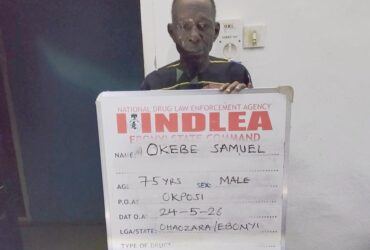 NATIONAL DRUG LAW ENFORCEMENT AGENCY
NDLEA
EBONYI STATE COMMAND
NAME: OKEBE SAMUEL
AGE 75YRS SEX: MALE
P.O.A: OKPOSI
DAT O.A: 24-5-26
LGA/STATE: OHAOZARA/EBONYI
TYPE OF DRUG: